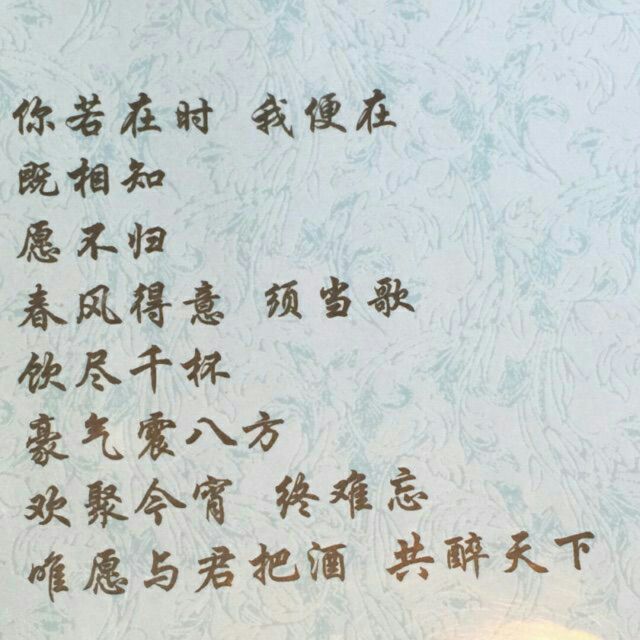 你若在时 我便在
既相知
愿不归
春风得意 须当歌
饮尽千杯
豪气震八方
欢聚今宵 终难忘
唯愿与君把酒 共醉天下